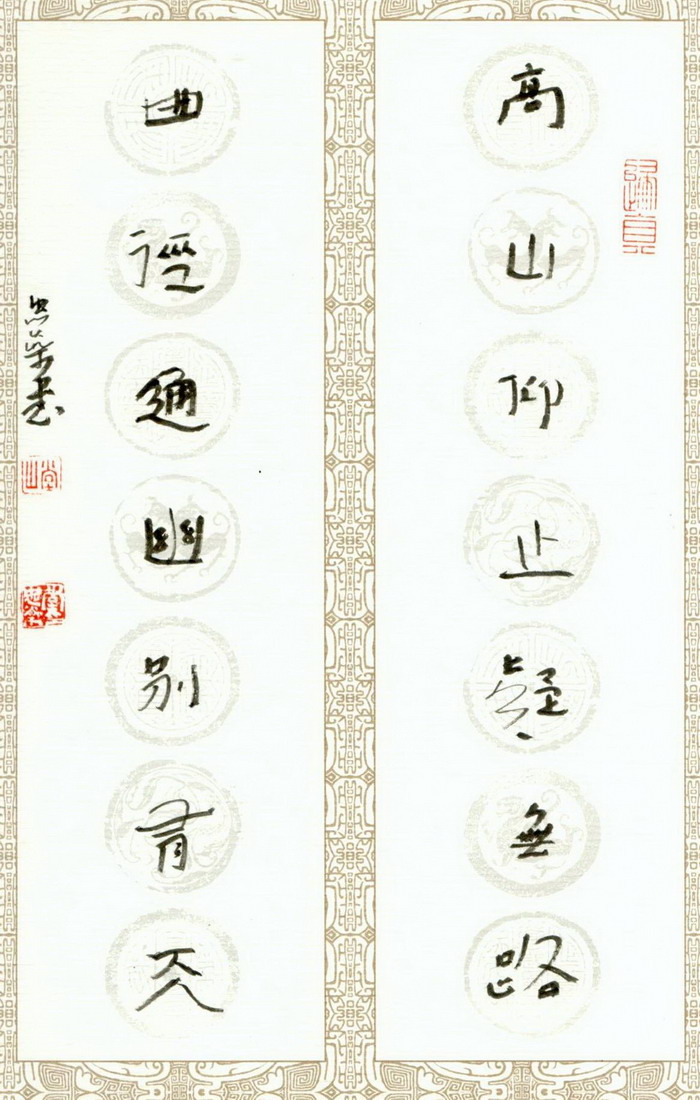 歸真
高山仰止疑無路
曲徑通幽別有天
書